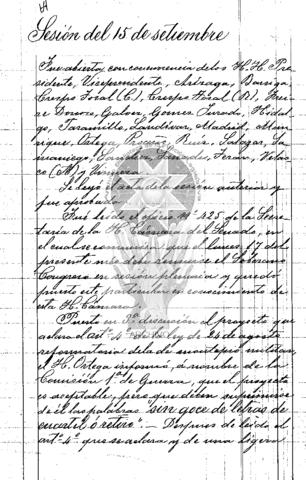 Sesión del 15 de setiembre
Fue abierta con concurrencia de los H. H. Pre-
sidente, Vicepresidente, Arízaga, Barriga,
Crespo Toral (C.), Crespo Toral (R.), Frei-
re Donoso, Galvez, Gómez Jurado, Hidal-
go, Jaramillo, Landívar, Madrid, Man-
rique, Ortega, Ruiz, Salazar, Sa-
maniego, Sánchez, Terán, Velas-
co (M) y
Se leyó el acta de la sesión anterior y
fue aprobada.
Fué leído el oficio N° 425 de la Secre-
taría de la H. Cámara del Senado, en
el cual se comunica que el lunes 17 del
presente mes debe reunirse el Soberano
Congreso en sesión plenaria y quedó
puesto este particular en conocimiento de
esta H. Cámara.
Puesto en 3ª discusión el proyecto que
aclara el artº 4º de la ley de 24 de agosto
reformatoria de la de montepío militar,
el H. Ortega informó, a nombre de la
Comisión 1ª de Guerra, que el proyecto
es aceptable, pero que deben suprimirse
de él las palabras "sin goce de letras de
cuartel o retiro". — Después de leído el
artº 4º que se aclara, y de una ligera